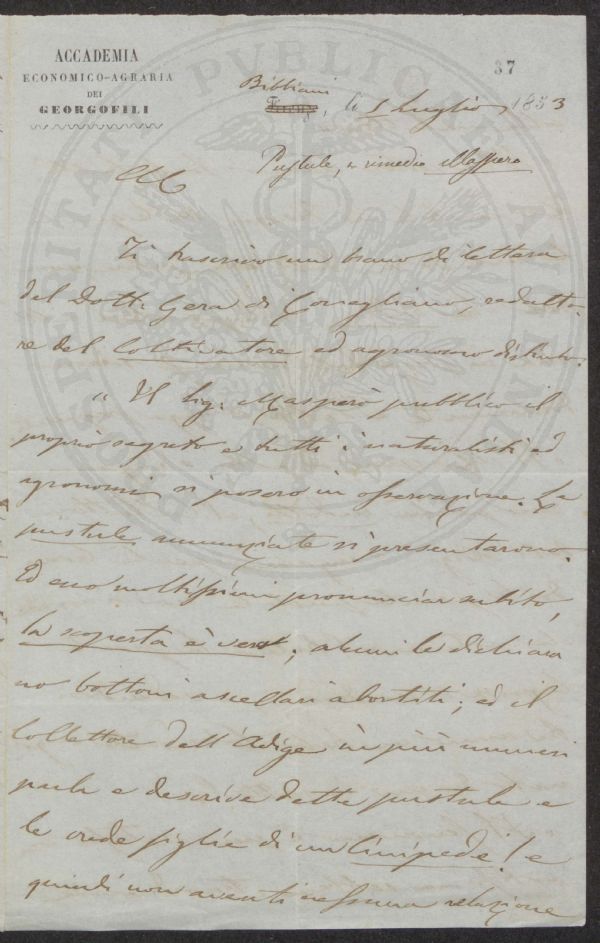 ACCADEMIA
ECONOMICO-AGRARIA
DEI
GEORGOFILI
37
Bibbiani
li 1 Luglio 1853
Pustule, e rimedio Maspero
PVBLICAE
Ti trascrivo un brano di lettera
del Dott. Gera di Conegliano, redatto-
re del Coltivatore ed agronomo distinto.
"Il Sig. Maspero pubblicò il
proprio segreto e tutti i naturalisti ed
agronomi si posero in osservazione. Le
pustule annunziate si presentarono.
Ed ecco moltissimi pronunciar subito,
la scoperta è vera; alcuni le dichiara-
no bottoni ascellari abortiti; ed il
Collettore dell'Adige in più numeri
parla e descrive dette pustule e
le crede figlie di un Cinipede! e
quindi non aventi nessuna relazione